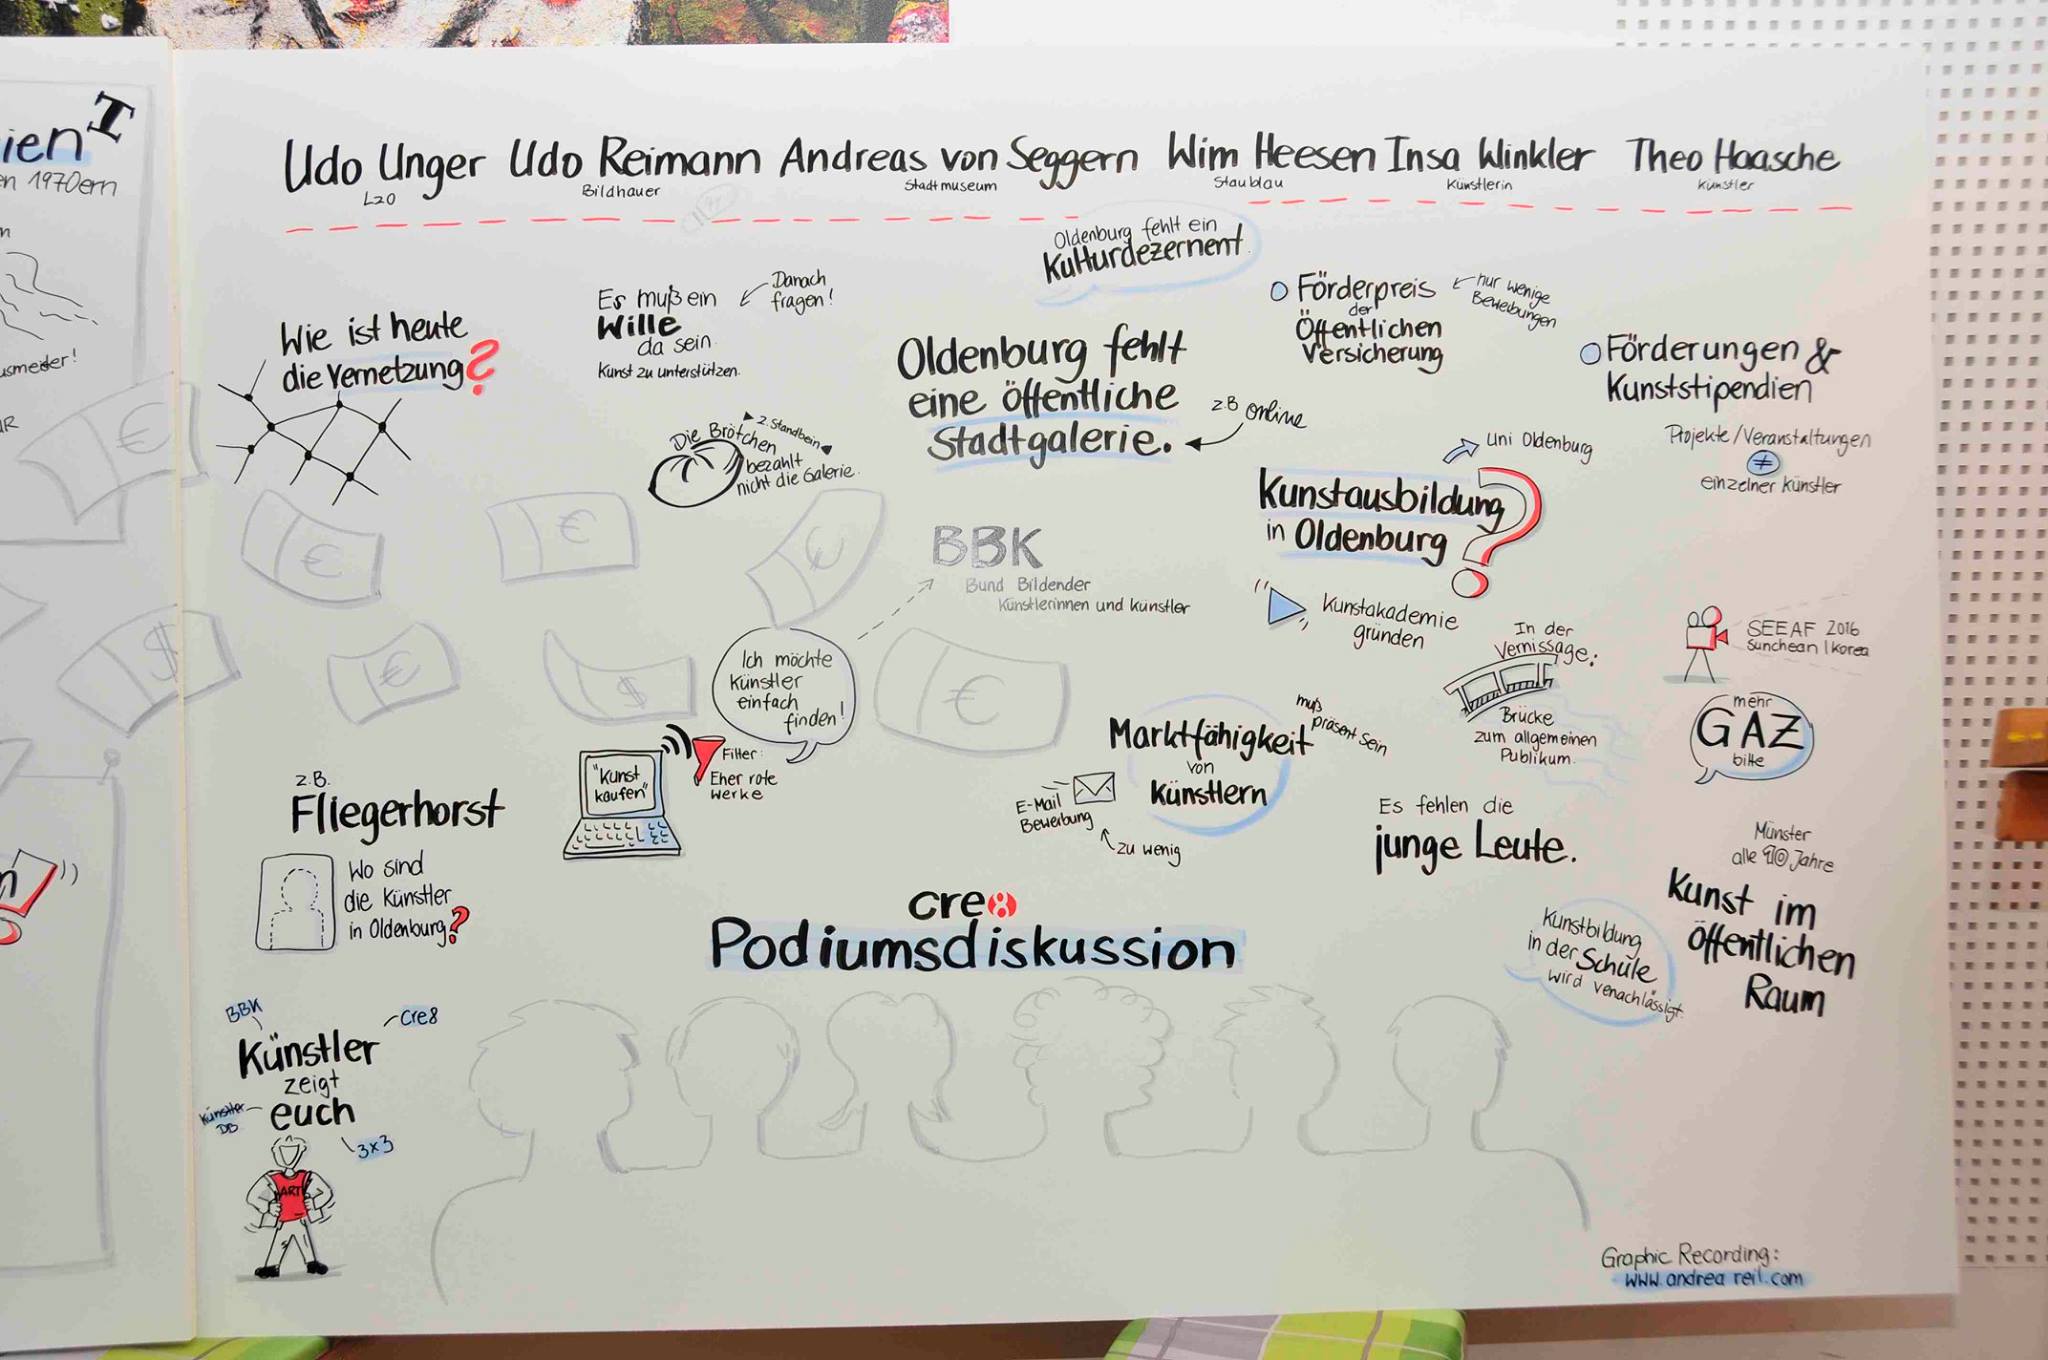 ien T
en 1970ern
usmeider!
Udo Unger
LzO
Udo Reimann
Bildhauer
Andreas von Seggern
Stadtmuseum
Wim Heesen
Staublau
Insa Winkler
Künstlerin
Theo Haasche
Künstler
Wie ist heute
die Vernetzung?
Es muß ein
Wille
da sein.
Kunst zu unterstützen.
Danach
fragen!
Die Brötchen
bezahlt
nicht die Galerie.
2. Standbein
Oldenburg fehlt ein
Kulturdezernent.
Oldenburg fehlt
eine öffentliche
Stadtgalerie.
z.B online
Förderpreis
der
Öffentlichen
Versicherung
nur wenige
Bewerbungen
Förderungen &
Kunststipendien
Projekte/Veranstaltungen
≠
einzelner Künstler
Uni Oldenburg
Kunstausbildung
in Oldenburg?
Kunstakademie
gründen
€ € € € $ € $ €
BBK
Bund Bildender
Künstlerinnen und Künstler
Ich möchte
Künstler
einfach
finden!
"Kunst
kaufen"
Filter:
Eher rote
Werke
z.B.
Fliegerhorst
Wo sind
die Künstler
in Oldenburg?
Marktfähigkeit
von
Künstlern
muß
präsent sein
E-Mail
Bewerbung
zu wenig
In der
Vernissage:
Brücke
zum allgemeinen
Publikum.
SEEAF 2016
Sunchean | Korea
mehr
GAZ
bitte
Es fehlen die
junge Leute.
Münster
alle 10 Jahre
Kunst im
öffentlichen
Raum
Kunstbildung
in der Schule
wird venachlässigt.
cre8
Podiumsdiskussion
BBK
Cre8
Künstler
zeigt
euch
Künstler
DB
3x3
ART
Graphic Recording:
www.andrea reil.com